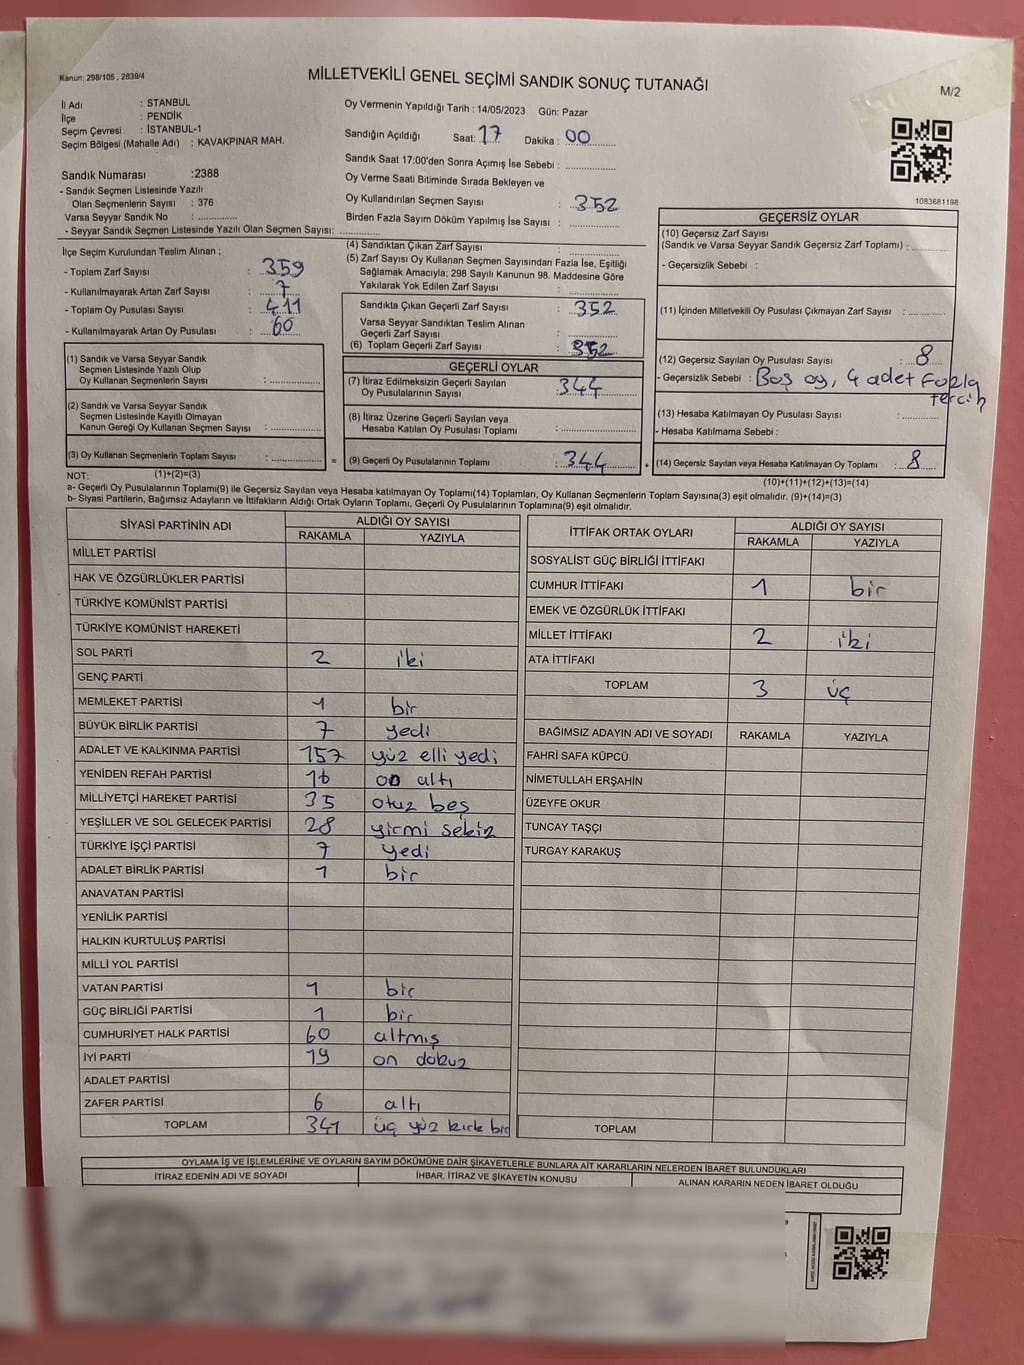 Kanun: 298/105 , 2839/4
MİLLETVEKİLİ GENEL SEÇİMİ SANDIK SONUÇ TUTANAĞI
M/2
İl Adı : STANBUL
İlçe : PENDİK
Seçim Çevresi : İSTANBUL-1
Seçim Bölgesi (Mahalle Adı) : KAVAKPINAR MAH.
Sandık Numarası :2388
- Sandık Seçmen Listesinde Yazılı
Olan Seçmenlerin Sayısı : 376
Varsa Seyyar Sandık No :
- Seyyar Sandık Seçmen Listesinde Yazılı Olan Seçmen Sayısı:
Oy Vermenin Yapıldığı Tarih : 14/05/2023 Gün: Pazar
Sandığın Açıldığı Saat: 17 Dakika : 00
Sandık Saat 17:00'den Sonra Açımış İse Sebebi :
Oy Verme Saati Bitiminde Sırada Bekleyen ve
Oy Kullandırılan Seçmen Sayısı : 352
Birden Fazla Sayım Döküm Yapılmış İse Sayısı :
1083681198
İlçe Seçim Kurulundan Teslim Alınan ;
- Toplam Zarf Sayısı : 359
- Kullanılmayarak Artan Zarf Sayısı : 7
- Toplam Oy Pusulası Sayısı : 411
- Kullanılmayarak Artan Oy Pusulası : 60
(1) Sandık ve Varsa Seyyar Sandık
Seçmen Listesinde Yazılı Olup
Oy Kullanan Seçmenlerin Sayısı :
(2) Sandık ve Varsa Seyyar Sandık
Seçmen Listesinde Kayıtlı Olmayan
Kanun Gereği Oy Kullanan Seçmen Sayısı :
(3) Oy Kullanan Seçmenlerin Toplam Sayısı : =
(4) Sandıktan Çıkan Zarf Sayısı :
(5) Zarf Sayısı Oy Kullanan Seçmen Sayısından Fazla İse, Eşitliği
Sağlamak Amacıyla; 298 Sayılı Kanunun 98. Maddesine Göre
Yakılarak Yok Edilen Zarf Sayısı :
Sandıkta Çıkan Geçerli Zarf Sayısı : 352
Varsa Seyyar Sandıktan Teslim Alınan
Geçerli Zarf Sayısı :
(6) Toplam Geçerli Zarf Sayısı : 352
GEÇERLİ OYLAR
(7) İtiraz Edilmeksizin Geçerli Sayılan
Oy Pusulalarının Sayısı : 344
(8) İtiraz Üzerine Geçerli Sayılan veya
Hesaba Katılan Oy Pusulası Toplamı :
(9) Geçerli Oy Pusulalarının Toplamı : 344 +
GEÇERSİZ OYLAR
(10) Geçersiz Zarf Sayısı
(Sandık ve Varsa Seyyar Sandık Geçersiz Zarf Toplamı) :
- Geçersizlik Sebebi :
(11) İçinden Milletvekili Oy Pusulası Çıkmayan Zarf Sayısı :
(12) Geçersiz Sayılan Oy Pusulası Sayısı : 8
- Geçersizlik Sebebi : Boş oy, 4 adet Fazla
tercih
(13) Hesaba Katılmayan Oy Pusulası Sayısı :
- Hesaba Katılmama Sebebi :
(14) Geçersiz Sayılan veya Hesaba Katılmayan Oy Toplamı : 8
NOT: (1)+(2)=(3) (10)+(11)+(12)+(13)=(14)
a- Geçerli Oy Pusulalarının Toplamı(9) ile Geçersiz Sayılan veya Hesaba katılmayan Oy Toplamı(14) Toplamları, Oy Kullanan Seçmenlerin Toplam Sayısına(3) eşit olmalıdır. (9)+(14)=(3)
b- Siyasi Partilerin, Bağımsız Adayların ve İttifakların Aldığı Ortak Oyların Toplamı, Geçerli Oy Pusulalarının Toplamına(9) eşit olmalıdır.
SİYASİ PARTİNİN ADI ALDIĞI OY SAYISI
RAKAMLA YAZIYLA
MİLLET PARTİSİ
HAK VE ÖZGÜRLÜKLER PARTİSİ
TÜRKİYE KOMÜNİST PARTİSİ
TÜRKİYE KOMÜNİST HAREKETİ
SOL PARTİ 2 iki
GENÇ PARTİ
MEMLEKET PARTİSİ 1 bir
BÜYÜK BİRLİK PARTİSİ 7 yedi
ADALET VE KALKINMA PARTİSİ 157 yüz elli yedi
YENİDEN REFAH PARTİSİ 16 on altı
MİLLİYETÇİ HAREKET PARTİSİ 35 otuz beş
YEŞİLLER VE SOL GELECEK PARTİSİ 28 yirmi sekiz
TÜRKİYE İŞÇİ PARTİSİ 7 yedi
ADALET BİRLİK PARTİSİ 1 bir
ANAVATAN PARTİSİ
YENİLİK PARTİSİ
HALKIN KURTULUŞ PARTİSİ
MİLLİ YOL PARTİSİ
VATAN PARTİSİ 1 bir
GÜÇ BİRLİĞİ PARTİSİ 1 bir
CUMHURİYET HALK PARTİSİ 60 altmış
İYİ PARTİ 19 on dokuz
ADALET PARTİSİ
ZAFER PARTİSİ 6 altı
TOPLAM 341 üç yüz kırk bir
İTTİFAK ORTAK OYLARI ALDIĞI OY SAYISI
RAKAMLA YAZIYLA
SOSYALİST GÜÇ BİRLİĞİ İTTİFAKI
CUMHUR İTTİFAKI 1 bir
EMEK VE ÖZGÜRLÜK İTTİFAKI
MİLLET İTTİFAKI 2 iki
ATA İTTİFAKI
TOPLAM 3 üç
BAĞIMSIZ ADAYIN ADI VE SOYADI RAKAMLA YAZIYLA
FAHRİ SAFA KÜPCÜ
NİMETULLAH ERŞAHİN
ÜZEYFE OKUR
TUNCAY TAŞÇI
TURGAY KARAKUŞ
TOPLAM
OYLAMA İŞ VE İŞLEMLERİNE VE OYLARIN SAYIM DÖKÜMÜNE DAİR ŞİKAYETLERLE BUNLARA AİT KARARLARIN NELERDEN İBARET BULUNDUKLARI
İTİRAZ EDENİN ADI VE SOYADI İHBAR, İTİRAZ VE ŞİKAYETİN KONUSU ALINAN KARARIN NEDEN İBARET OLDUĞU